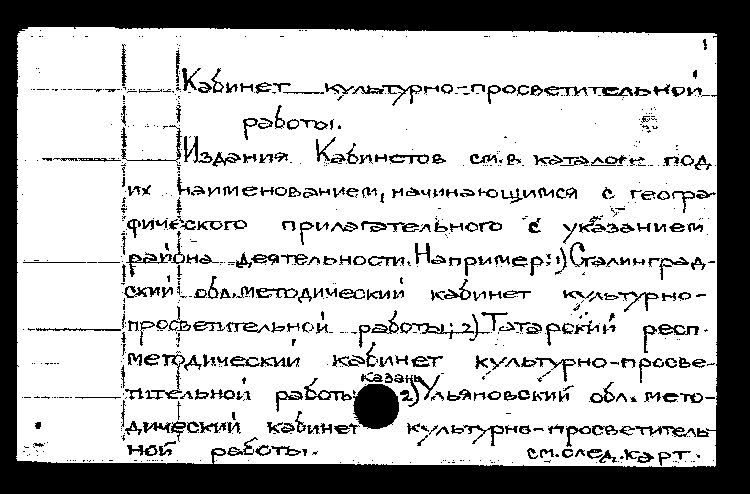 1
Кабинет культурно-просветительной
работы.
Издания Кабинетов см. в каталоге под
их наименованием, начинающимся с геогра-
фического прилагательного с указанием
района деятельности. Например: 1) Сталинград-
ский обл. методический кабинет культурно-
просветительной работы; 2) Татарский респ.
методический кабинет культурно-просве-
Казань
тительной работы 2) Ульяновский обл. мето-
дический кабинет культурно-просветитель-
ной работы. см. след. карт.